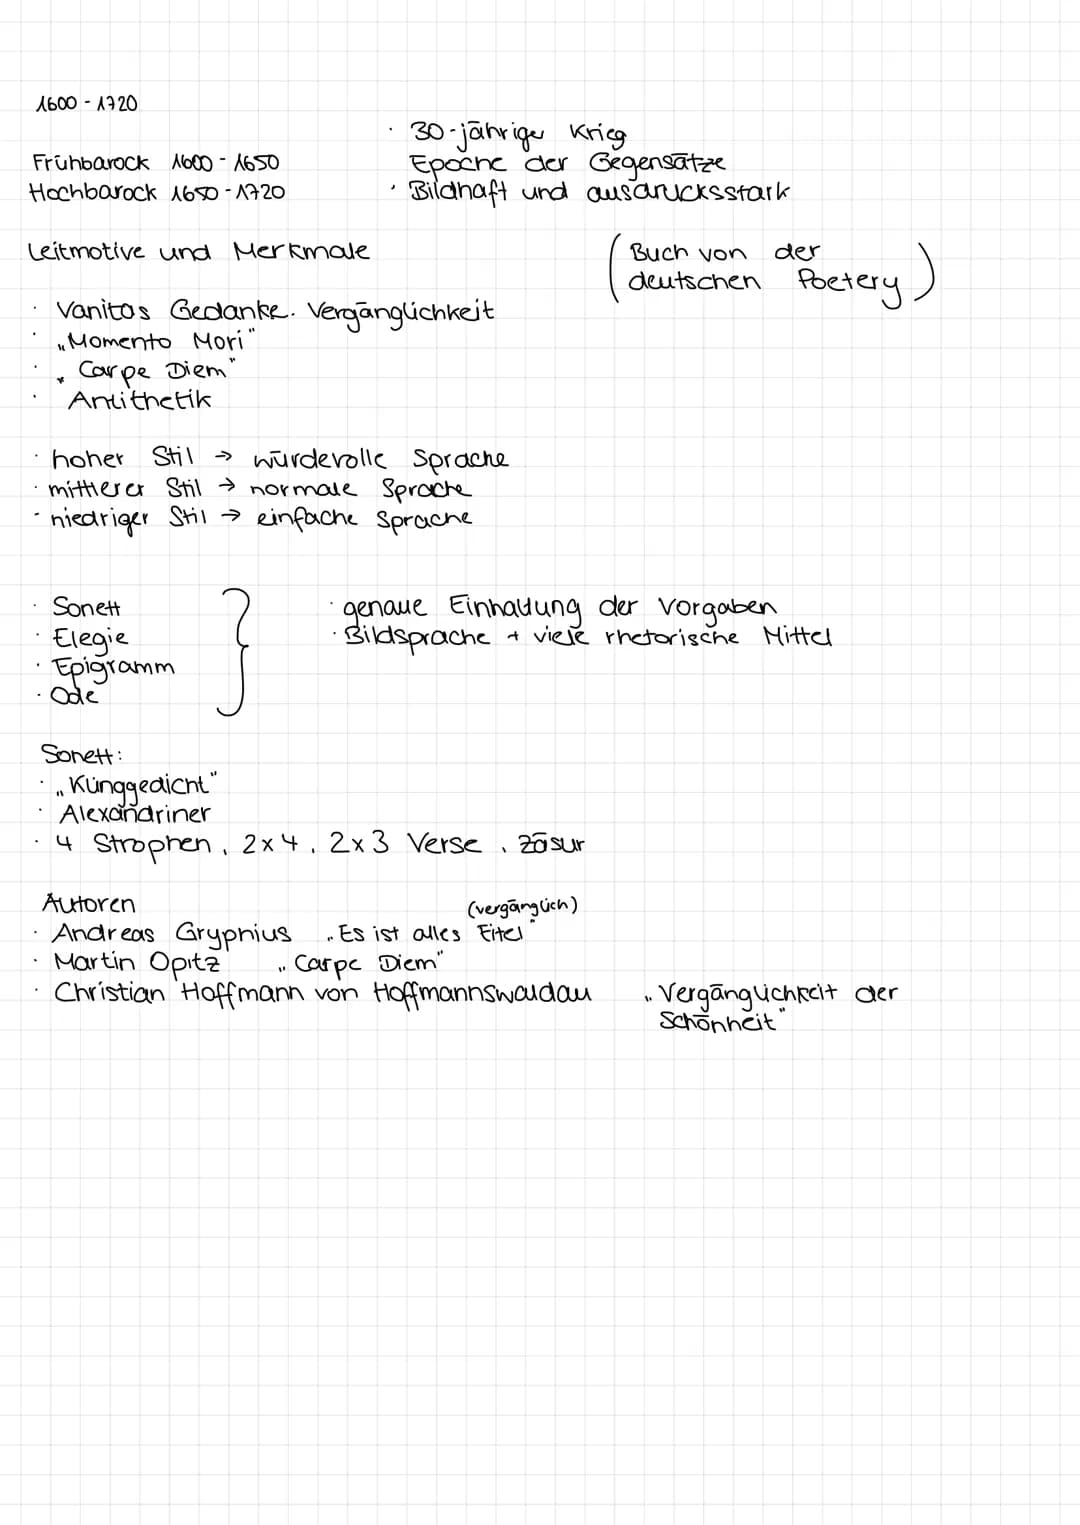 1600 - 1720
· 30-jähriger Krieg
Frühbarock 1600 - 1650
Epoche der Gegensätze
Hochbarock 1650 - 1720
· Bildhaft und ausdrucksstark
Leitmotive und Merkmale
(Buch von der
deutschen Poetery)
· Vanitas Gedanke. Vergänglichkeit
· „Momento Mori"
· „Carpe Diem"
· Antithetik
· hoher Stil → würdevolle Sprache
· mittlerer Stil → normale Sprache
· niedriger Stil → einfache Sprache
· Sonett
· Elegie
· Epigramm
· Ode
· genaue Einhaltung der Vorgaben
· Bildsprache + viele rhetorische Mittel
Sonett:
· „Künggedicht"
· Alexandriner
· 4 Strophen, 2x4, 2x3 Verse, Zäsur
Autoren
(vergänglich)
· Andreas Gryphius „Es ist alles Eitel"
· Martin Opitz „Carpe Diem"
· Christian Hoffmann von Hoffmannswaldau „Vergänglichkeit der
Schönheit"